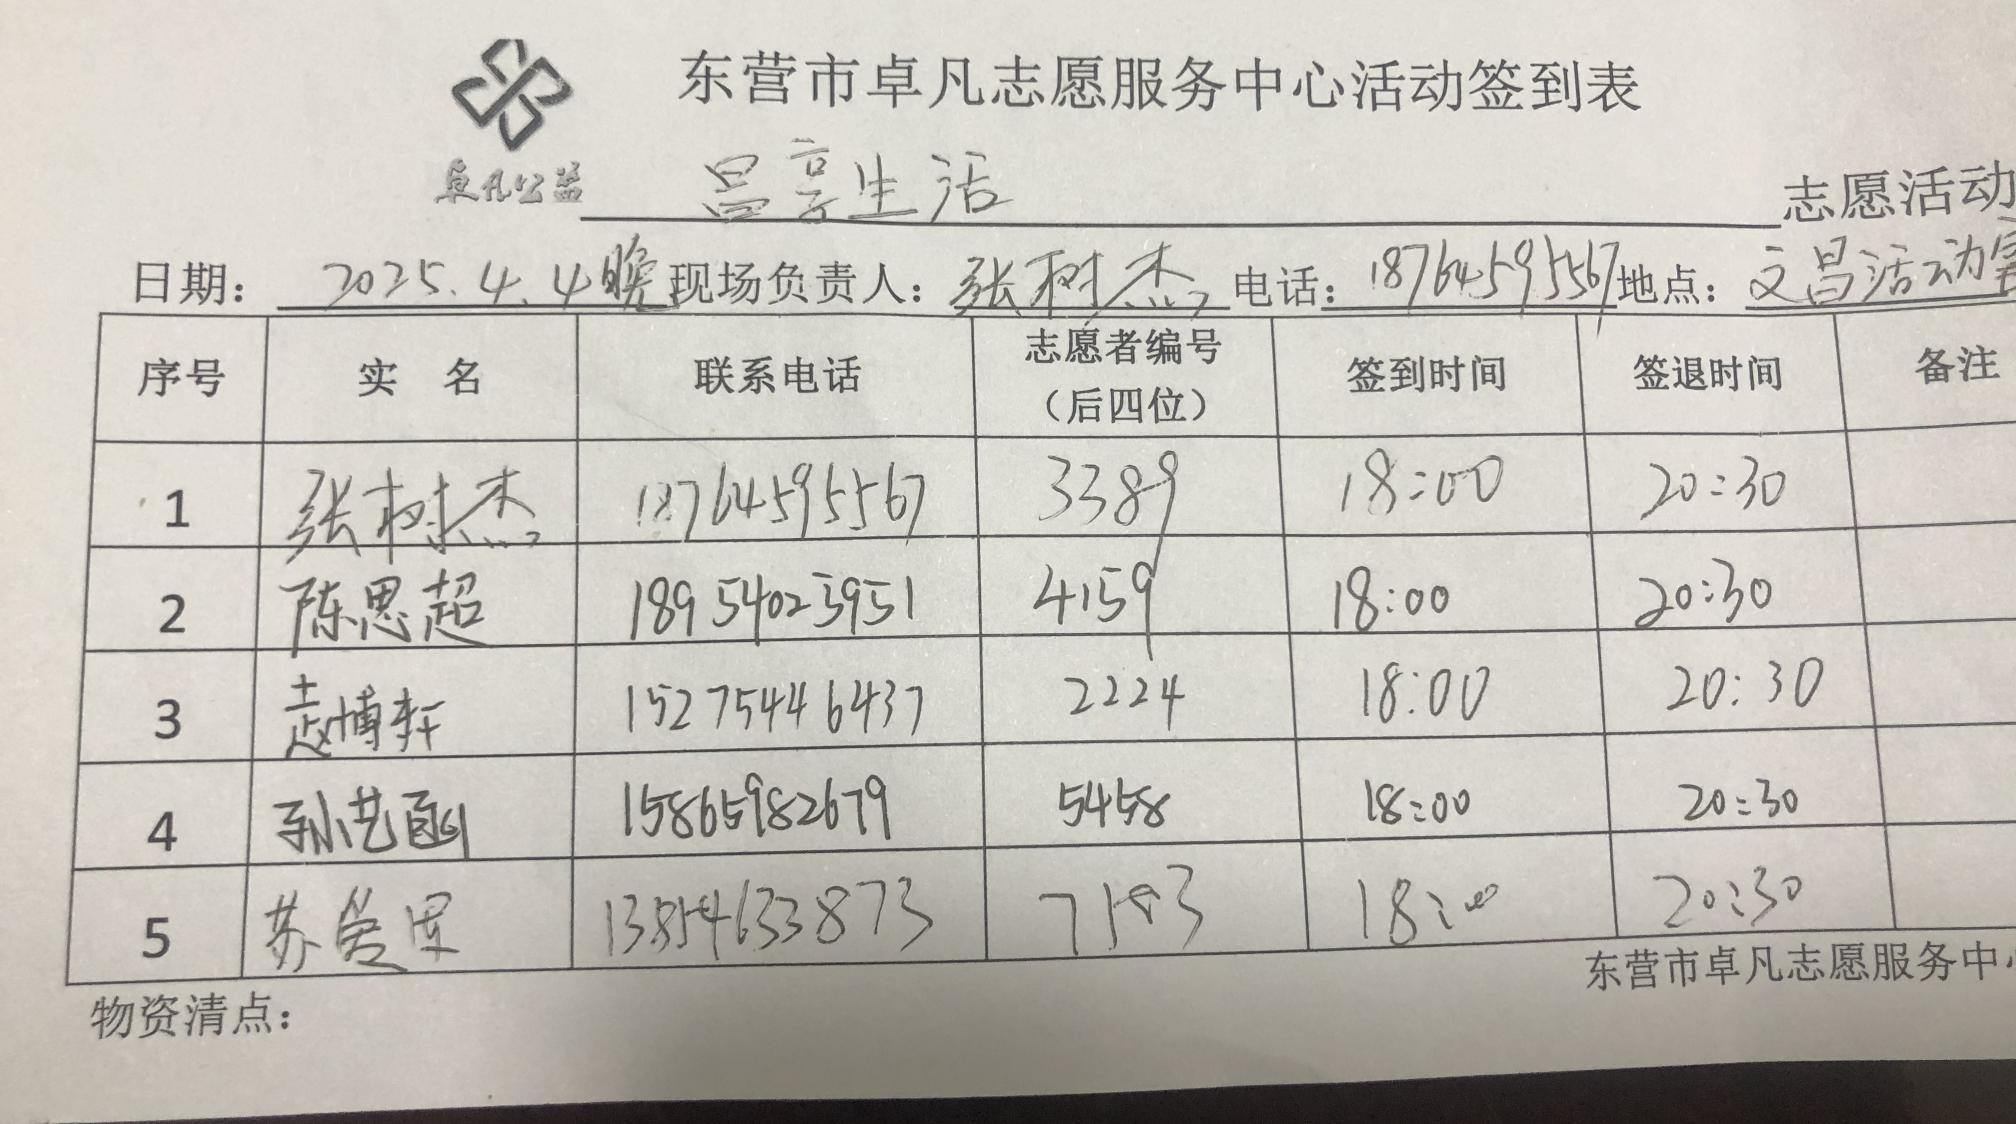 东营市卓凡志愿服务中心活动签到表
卓凡公益 昌享生活 志愿活动
日期: 2025.4.4晚 现场负责人: 张树杰 电话: 18764595567 地点: 文昌活动室
序号 实 名 联系电话 志愿者编号（后四位） 签到时间 签退时间 备注
1 张树杰 18764595567 3389 18:00 20:30
2 陈思超 18954023951 4159 18:00 20:30
3 赵博轩 15275446437 2224 18:00 20:30
4 孙艺函 15865982679 5458 18:00 20:30
5 苏 13854633873 7183 18:00 20:30
东营市卓凡志愿服务中心
物资清点: